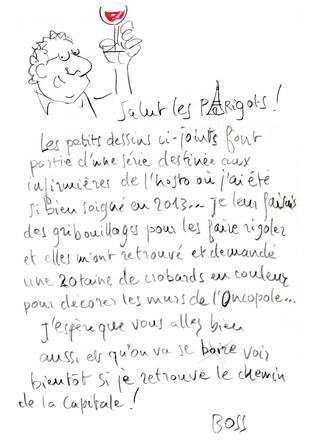 Salut les PARigots !
Les petits dessins ci-joints font
partie d'une série destinée aux
infirmières de l'hosto où j'ai été
si bien soigné en 2013... je leur faisais
des gribouillages pour les faire rigoler
et elles m'ont retrouvé et demandé
une 20taine de crobards en couleur
pour décorer les murs de l'Oncopole...
J'espère que vous allez bien
aussi, et qu'on va se boire voir
bientôt si je retrouve le chemin
de la Capitale !
BOSS